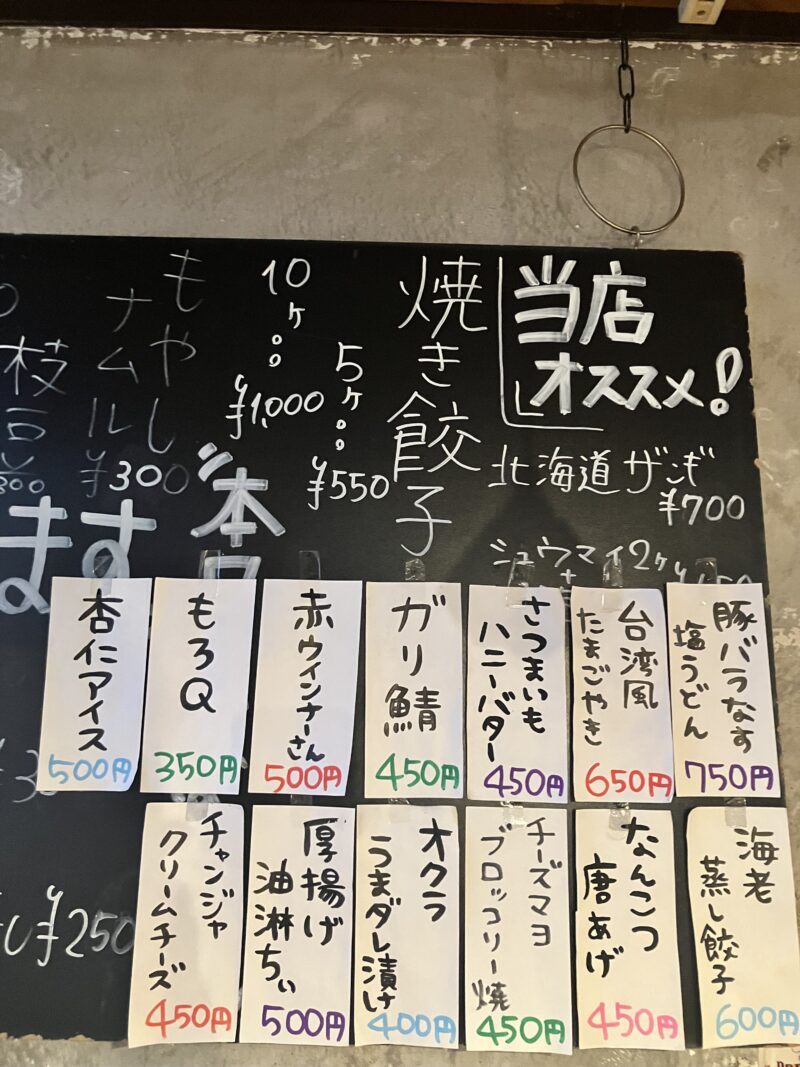 当店
オススメ!
北海道ザンギ
¥700
シュウマイ2ヶ
焼き餃子
5ヶ
¥550
10ヶ
¥1,000
もやし
ナムル
¥300
枝豆
ます
¥250
豚バラなす
塩うどん
750円
台湾風
たまごやき
650円
さつまいも
ハニーバター
450円
ガリ鯖
450円
赤ウインナーさん
500円
もろQ
350円
杏仁アイス
500円
海老
蒸し餃子
600円
なんこつ
唐あげ
450円
チーズマヨ
ブロッコリー焼
450円
オクラ
うまダレ漬け
400円
厚揚げ
油淋ちぃ
500円
チャンジャ
クリームチーズ
450円